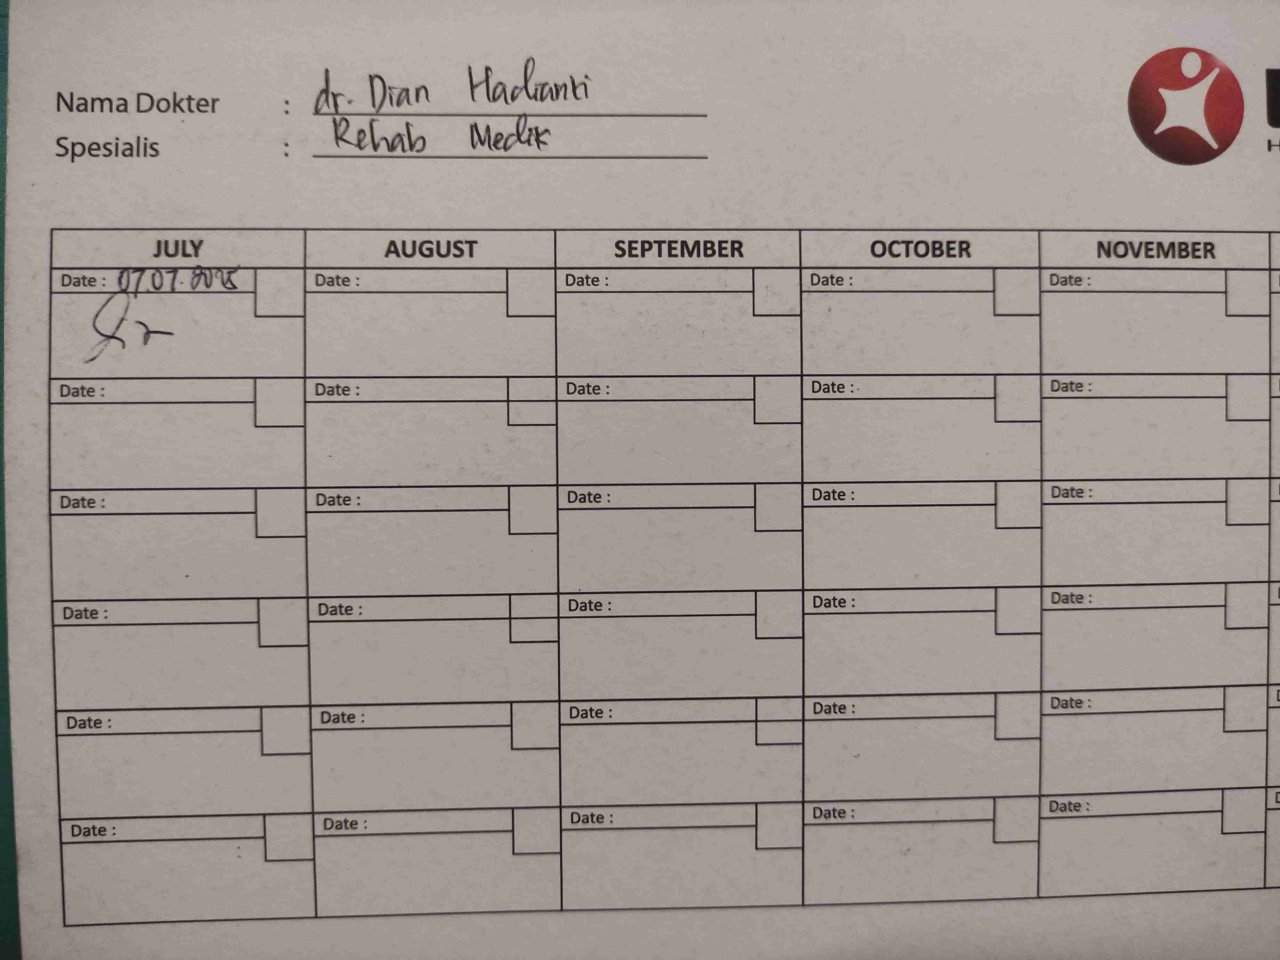 Nama Dokter : dr. Dian Hadianti
Spesialis : Rehab Medik
JULY AUGUST SEPTEMBER OCTOBER NOVEMBER
Date : 07.07.2025 Date : Date : Date : Date :
Date : Date : Date : Date : Date :
Date : Date : Date : Date : Date :
Date : Date : Date : Date : Date :
Date : Date : Date : Date : Date :
Date : Date : Date : Date : Date :